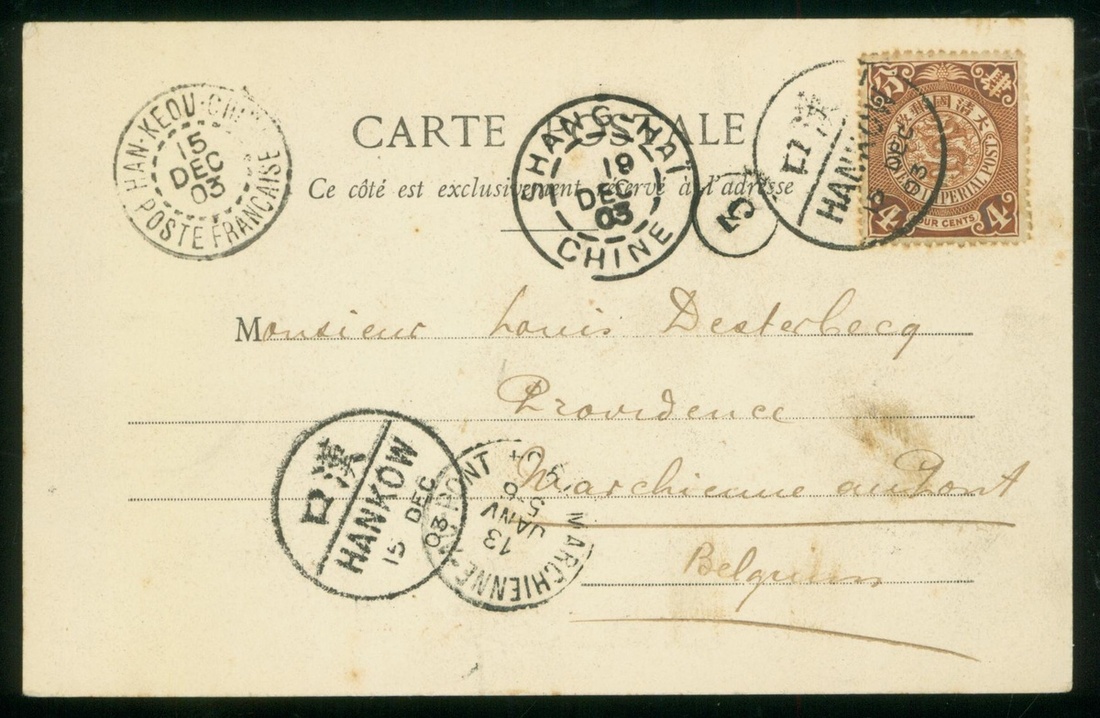 CARTE POSTALE
Ce côté est exclusivement réservé à l'adresse
HAN-KEOU-CHINE
15
DEC
03
POSTE FRANÇAISE
SHANG-HAÏ
19
DEC
03
CHINE
5
漢口
HANKOW
DEC
03
分 肆
大清國郵政
IMPERIAL POST
4 FOUR CENTS 4
Monsieur Louis Desterbecq
Providence
Marchienne au Pont
Belgium
漢口
HANKOW
15 DEC
03
MARCHIENNE-AU-PONT
13
JANV
5-6